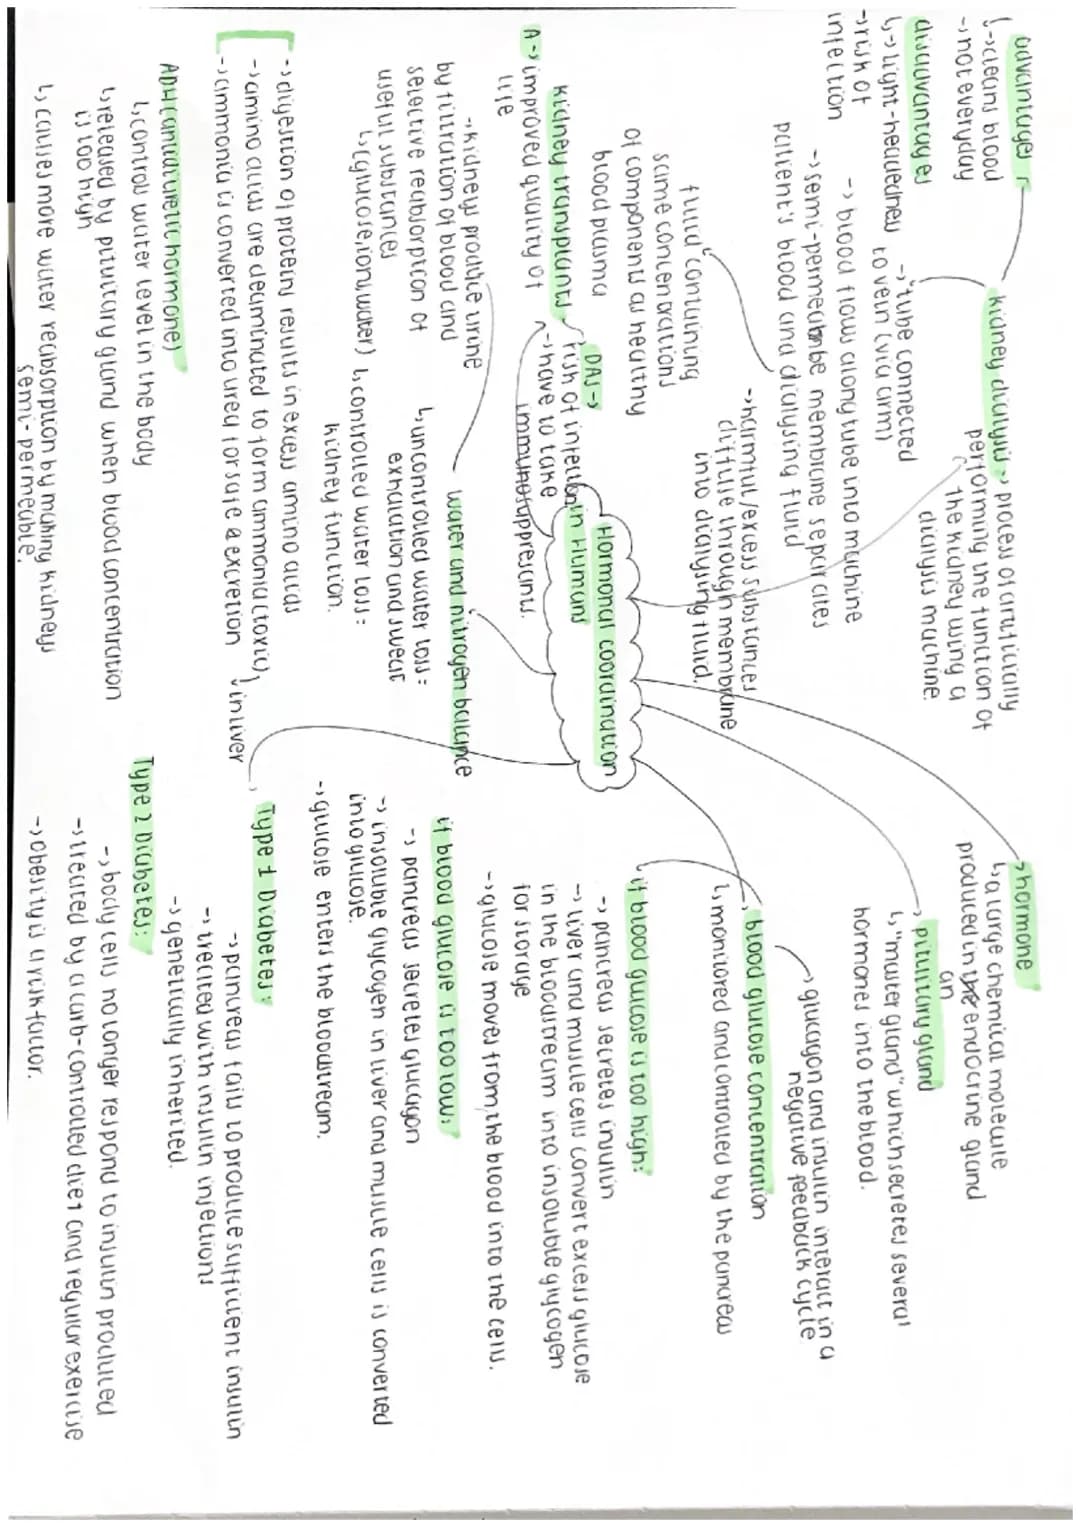 Hormonal coordination
in Humans
advantages
↳→cleans blood
→not everyday
disadvantages
↳→light-headedness
→risk of
infection
kidney dialysis → process of artificially
performing the function of
the kidney using a
dialysis machine.
→ tube connected
to vein (via arm)
→ blood flows along tube into machine
→semi-permeable membrane separates
patient's blood and dialysing fluid
→harmful/excess substances
diffuse through membrane
into dialysing fluid.
fluid containing
same concentrations
of components as healthy
blood plasma
kidney transplants
A→improved quality of
life
DAS→
risk of infection
→have to take
immunosuppresants.
water and nitrogen balance
→kidneys produce urine
by filtration of blood and
selective reabsorption of
useful substances
↳(glucose,ions,water)
↳uncontrolled water loss=
exhalation and sweat
↳controlled water loss=
kidney function.
→digestion of proteins results in excess amino acids
→amino acids are deaminated to form ammonia (toxic)
→ammonia is converted into urea for safe excretion
in liver
ADH(antidiuretic hormone)
↳control water level in the body
↳released by pituitary gland when blood concentration
is too high
↳causes more water reabsorption by making kidneys
semi-permeable.
→hormone
↳a large chemical molecule
produced in the endocrine gland
an
→pituitary gland
↳"master gland" which secretes several
hormones into the blood.
→ glucagon and insulin interact in a
negative feedback cycle
blood glucose concentration
↳monitored and controlled by the pancreas
if blood glucose is too high:
→ pancreas secretes insulin
→liver and muscle cells convert excess glucose
in the bloodstream into insoluble glycogen
for storage
→glucose moves from the blood into the cells.
if blood glucose is too low:
→ pancreas secretes glucagon
→ insoluble glycogen in liver and muscle cells is converted
into glucose.
→glucose enters the bloodstream.
Type 1 Diabetes:
→ pancreas fails to produce sufficient insulin
→ treated with insulin injections
→ genetically inherited.
Type 2 Diabetes:
→ body cells no longer respond to insulin produced
→treated by a carb-controlled diet and regular exercise
→obesity is a risk factor.